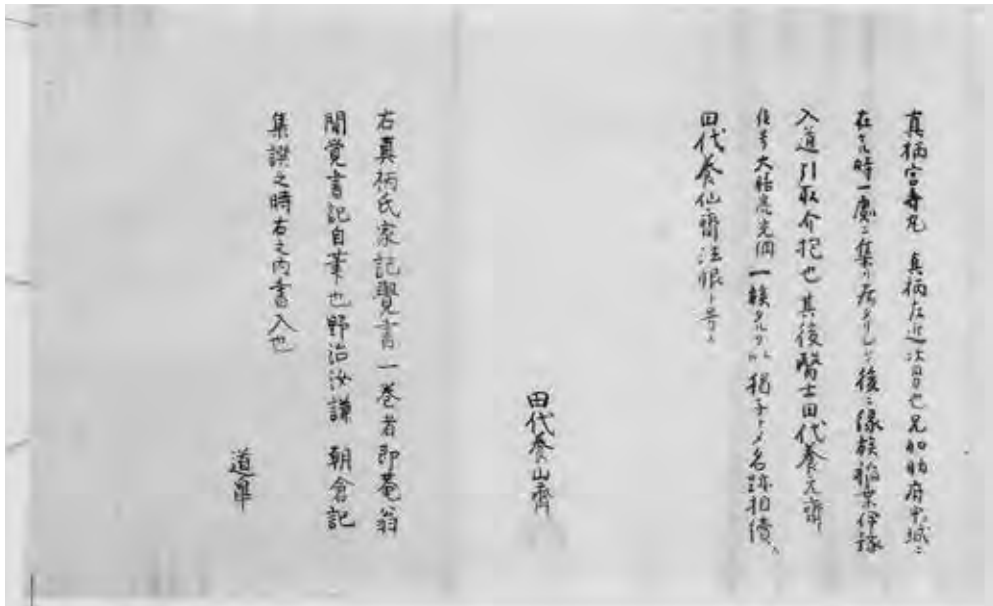 真柄宮壽丸 真柄左近次男也兄加助府中ノ城ニ
在ケル時一處ニ集リ居タリシカ後ニ縁族稲葉伊豫
入道引取介抱也其後醫士田代養元齋
後号大膳亮光綱 一族タルヲ以 猶子トメ名跡相續ス
田代養仙齋法眼ト号ス
田代養山齋
右真柄氏家記覺書一巻者即菴翁
聞覚書記自筆也野治汝謙 朝倉記
集譔之時右之内書入也
道卑